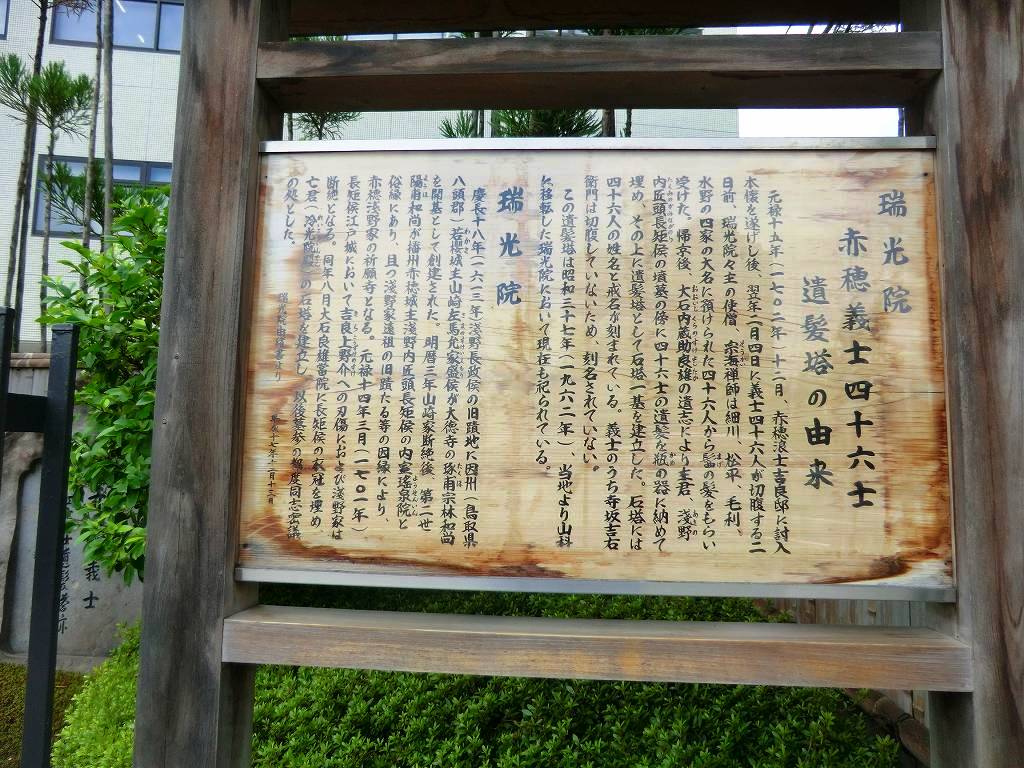 瑞光院
赤穂義士四十六士
遺髪塔の由来
元禄十五年(一七〇二年)十二月、赤穂浪士吉良邸に討入
本懐を遂げし後、翌年二月四日に義士四十六人が切腹する二
日前、瑞光院々主の使僧、宗海禅師は細川、松平、毛利、
水野の四家の大名に預けられた四十六人から髷の髪をもらい
受けた。帰京後、大石内蔵助良雄の遺志により主君、浅野
内匠頭長矩侯の墳墓の傍に四十六士の遺髪を瓶の器に納めて
埋め、その上に遺髪塔として石塔一基を建立した。石塔には
四十六人の姓名と戒名が刻まれている。義士のうち寺坂吉右
衛門は切腹していないため、刻名されていない。
この遺髪塔は昭和三十七年(一九六二年)、当地より山科
に移転した瑞光院において現在も祀られている。
瑞光院
慶長十八年(一六一三年)浅野長政侯の旧蹟地に因州(鳥取県
八頭郡)若櫻城主山崎左馬允家盛侯が大徳寺の琢甫宗林和尚
を開基として創建された。明暦三年山崎家断絶後、第二世
陽甫和尚が播州赤穂城主浅野内匠頭長矩侯の内室瑤泉院と
俗縁にあり、且つ浅野家遠祖の旧蹟たる等の因縁により、
赤穂浅野家の祈願寺となる。元禄十四年三月(一七〇一年)
長矩侯江戸城において吉良上野介への刃傷におよび浅野家は
断絶となる。同年八月大石良雄當院に長矩侯の衣冠を埋め
亡君(冷光院殿)の石塔を建立し、以後墓参の都度同志密議
の処とした。
十七年十二月十三日
義士